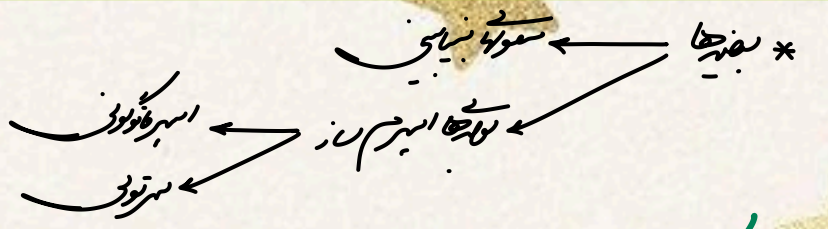 * بیضه‌ها
سلولهای بینابینی
لوله‌های اسپرم ساز
اسپرماتوگونی
سرتولی